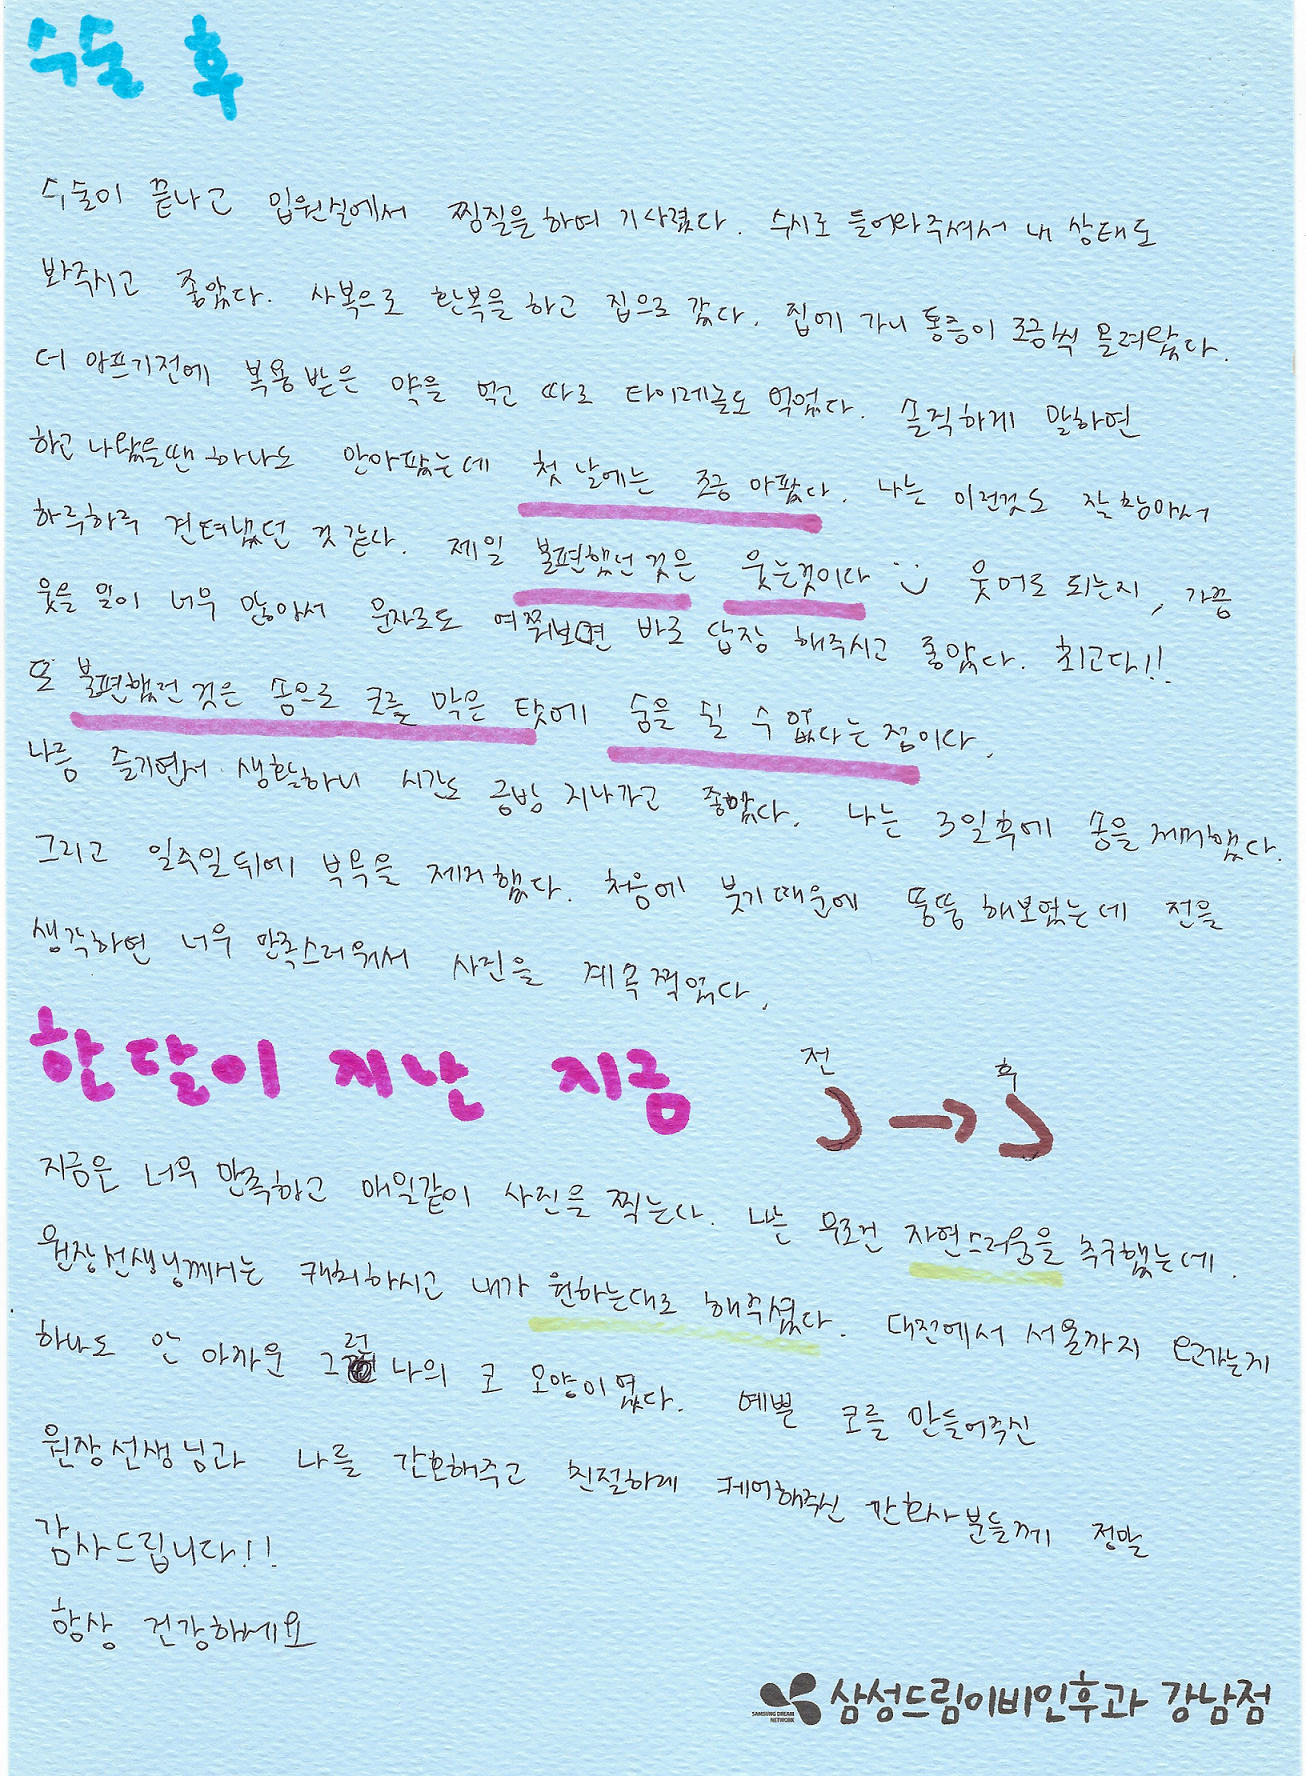 수술 후
수술이 끝나고 입원실에서 찜질을 하며 기다렸다. 수시로 들어와주셔서 내 상태도
봐주시고 좋았다. 사복으로 환복을 하고 집으로 갔다. 집에 가니 통증이 조금씩 올려왔다.
더 아프기전에 복용 받은 약을 먹고 따로 타이레놀도 먹었다. 솔직하게 말하면
하고 나왔을땐 하나도 안아팠는데 첫 날에는 조금 아팠다. 나는 이런것도 잘 참아서
하루하루 견뎌냈던 것 같다. 제일 불편했던 것은 웃는것이다 :) 웃어도 되는지, 가끔
웃을 일이 너무 많아서 문자로도 여쭤보면 바로 답장 해주시고 좋았다. 최고다!!
또 불편했던 것은 솜으로 코를 막은 탓에 숨을 쉴 수 없다는 점이다.
나름 즐기면서 생활하니 시간도 금방 지나가고 좋았다. 나는 3일후에 솜을 제거했다.
그리고 일주일 뒤에 부목을 제거했다. 처음에 붓기때문에 뚱뚱 해보였는데 전을
생각하면 너무 만족스러워서 사진을 계속 찍었다.
한달이 지난 지금
전 → 후
지금은 너무 만족하고 매일같이 사진을 찍는다. 나는 무조건 자연스러움을 추구했는데.
원장선생님께서는 캐치하시고 내가 원하는대로 해주셨다. 대전에서 서울까지 오고가는게
하나도 안 아까운 그런 나의 코 모양이였다. 예쁜 코를 만들어주신
원장선생님과 나를 간호해주고 친절하게 케어해주신 간호사분들께 정말
감사드립니다!!
항상 건강하세요
SAMSUNG DREAM NETWORK 삼성드림이비인후과 강남점